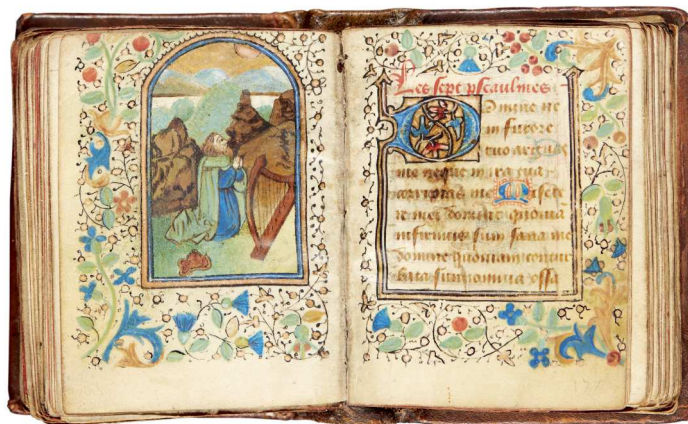 Les sept pseaulmes
Domine ne
in furore
tuo arguas
me neque in ira tua
corripias me Misere
re mei domine quoniã
infirmus sum sana me
domine quoniam contur
bata sunt omnia ossa